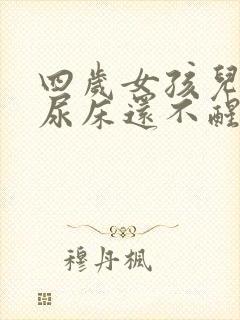 四歲女孩兒
尿床還不醒
穆丹楓